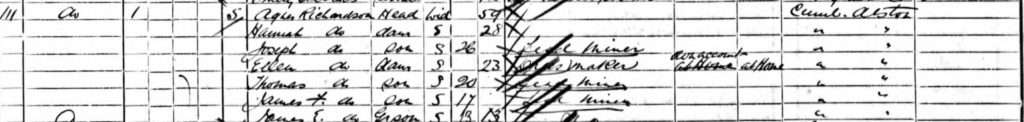 111 do 1 5 Agnes Richardson Head Wid 59 Cumb. Alston
Hannah do daur S 28 " "
Joseph do son S 26 Lead Miner " "
Ellen do daur S 23 maker own account at Home at Home " "
Thomas do son S 20 Lead Miner " "
James F. do son S 17 Lead Miner " "
James E. do Grson S 13 13 "